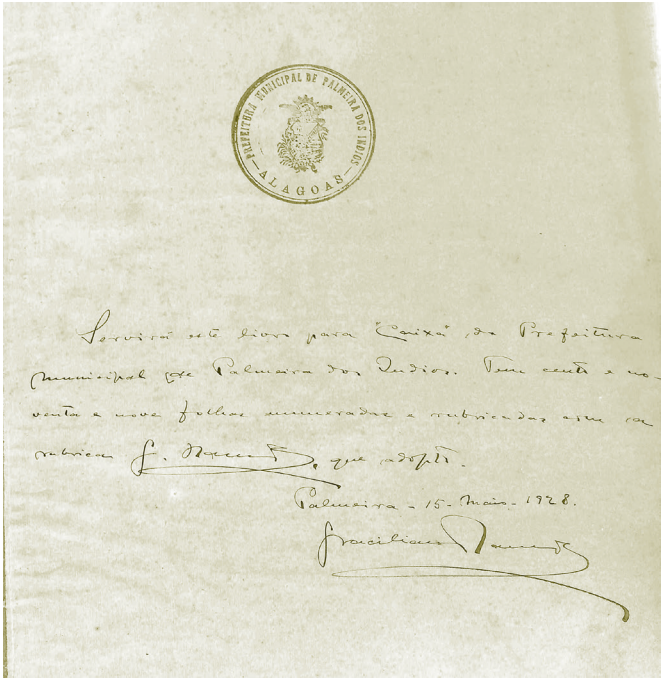 PREFEITURA MUNICIPAL DE PALMEIRA DOS INDIOS
ALAGOAS
Servirá este livro para "Caixa" da Prefeitura
Municipal de Palmeira dos Indios. Tem cento e no-
venta e nove folhas numeradas e rubricadas com a
rubrica G. Ramos, que adopto.
Palmeira - 15 - Maio - 1928.
Graciliano Ramos